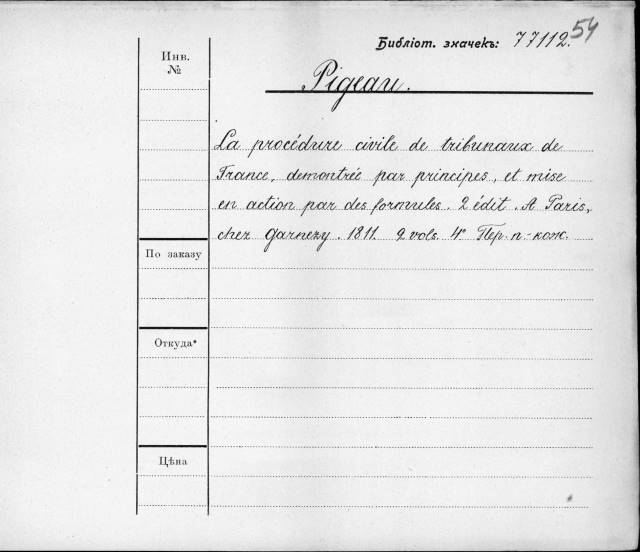 54
Библіот. значекъ: 77112.
Инв.
№
Pigeau.
La procédure civile de tribunaux de
France, demontrée par principes, et mise
en action par des formules. 2 édit. A Paris,
chez Garnezy. 1811. 2 vols. 4° Пер. п-кож.
По заказу
Откуда
Цѣна